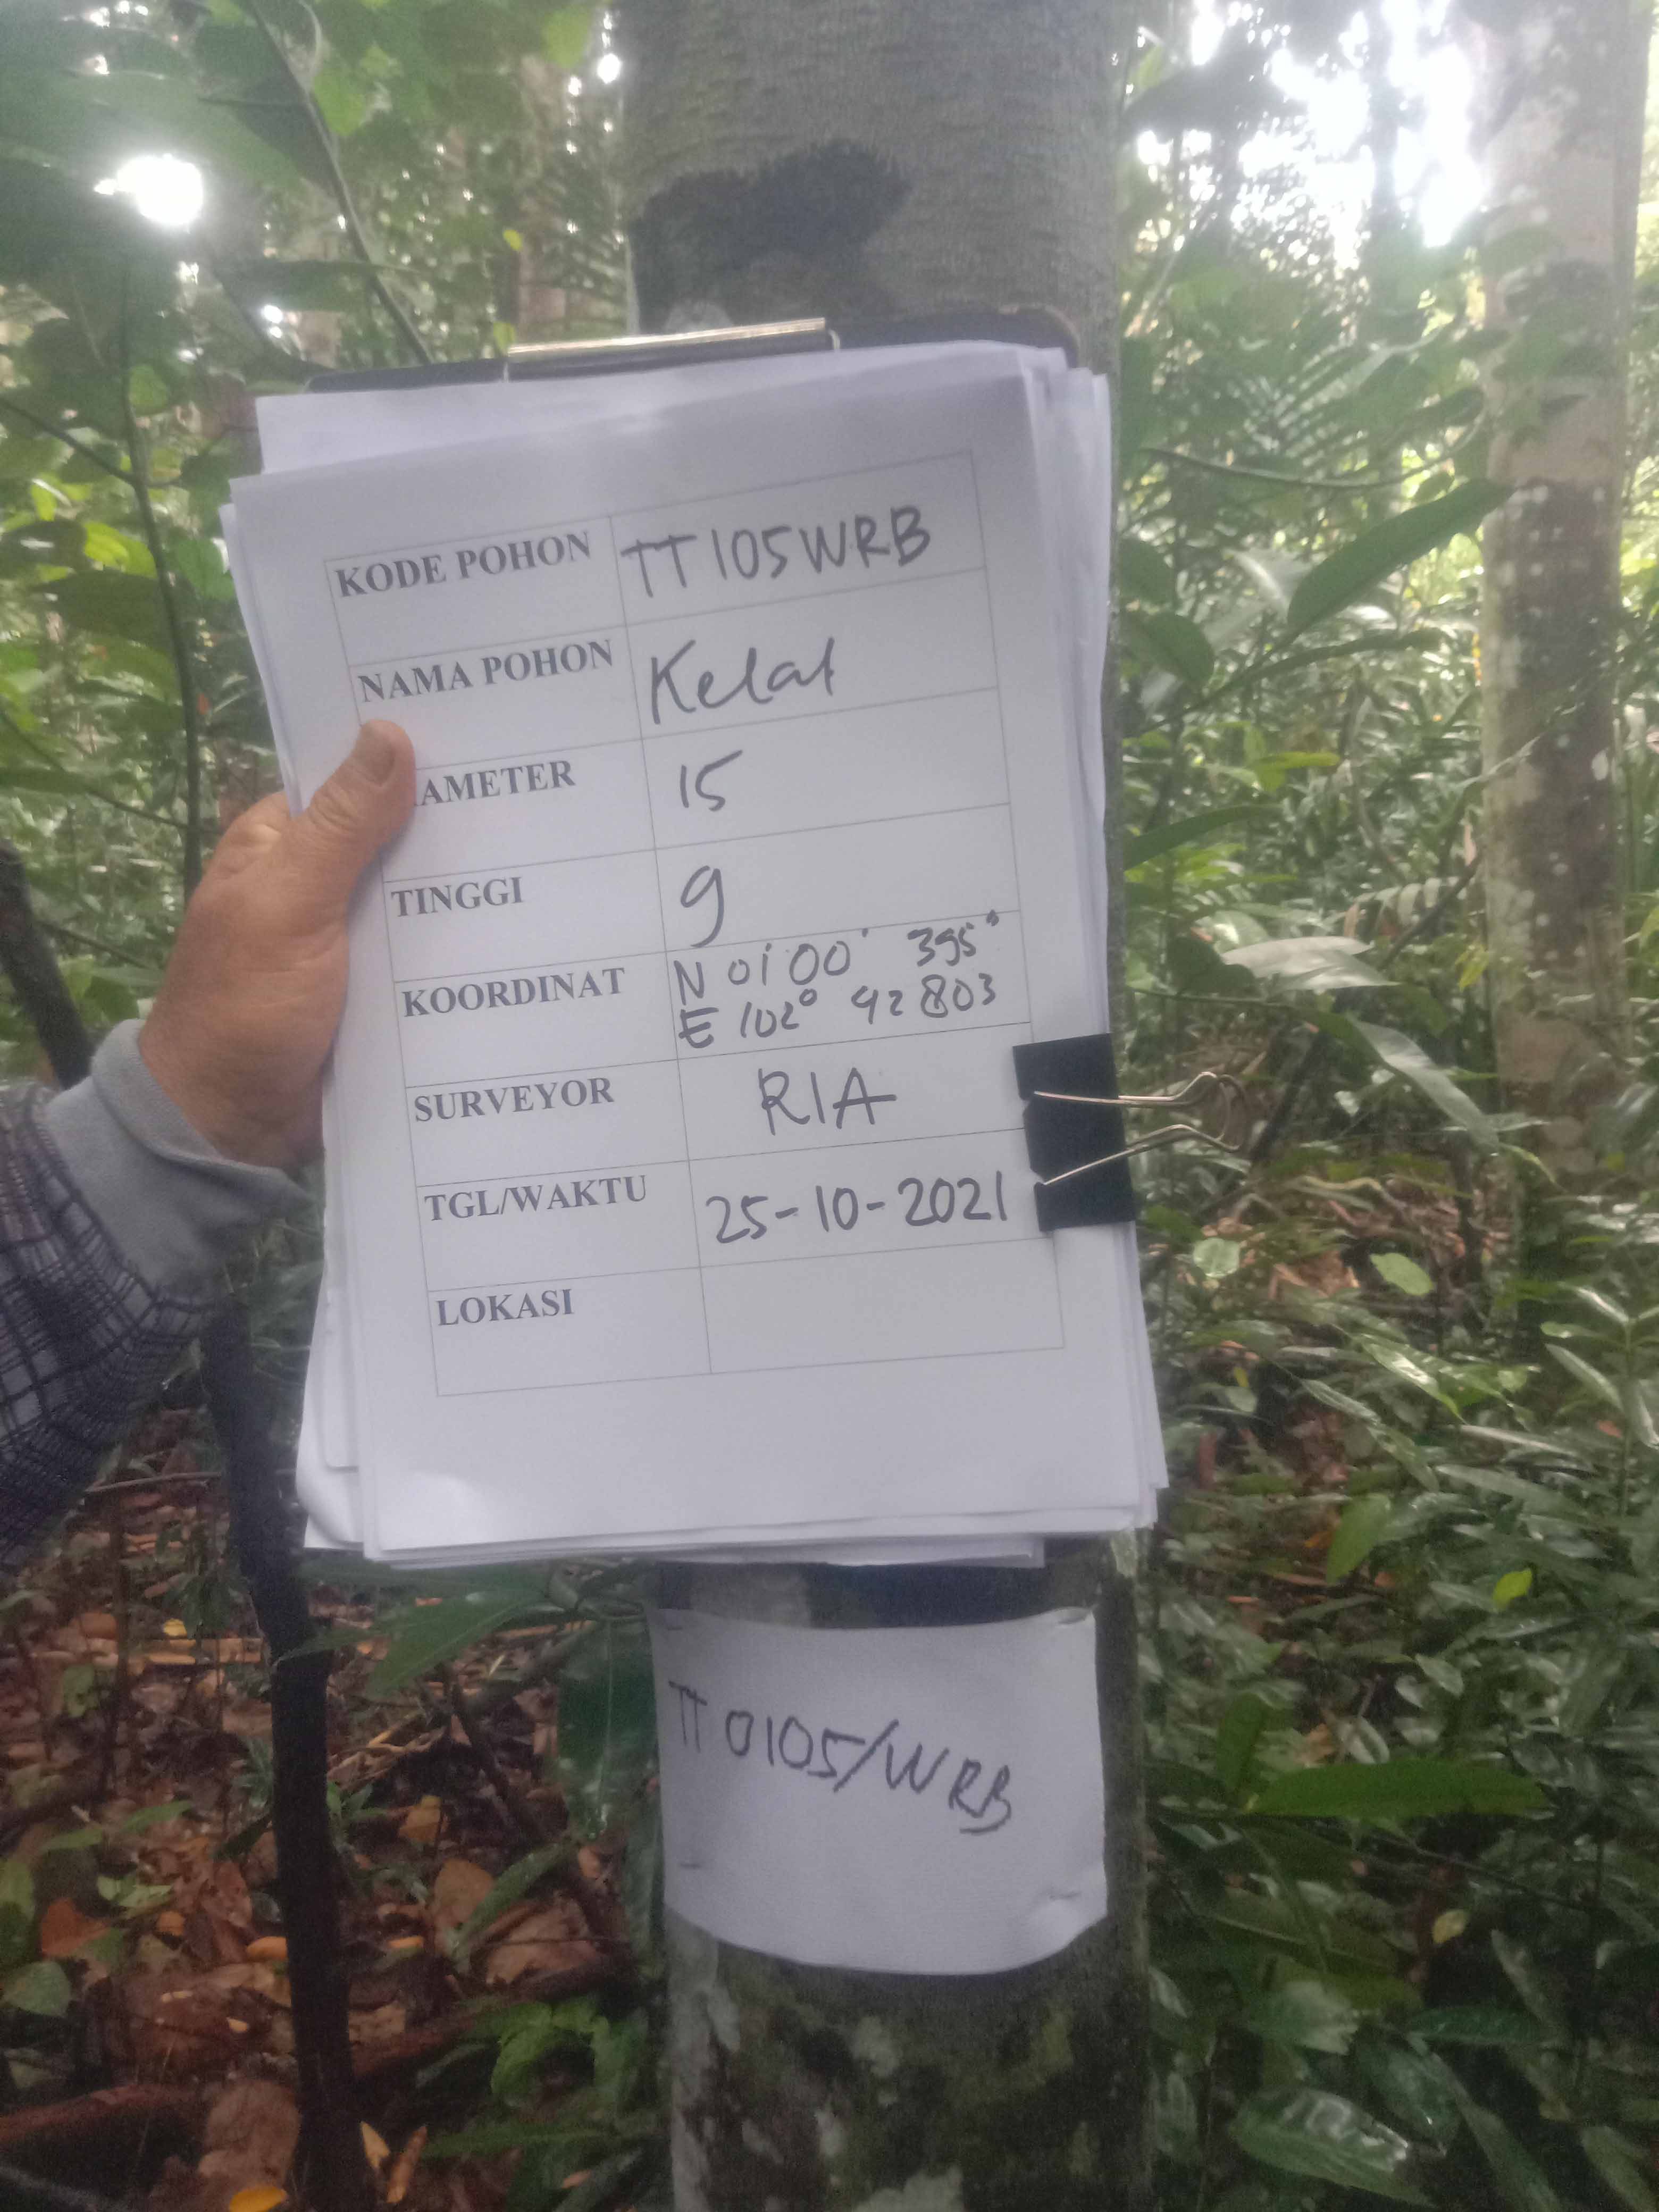 KODE POHON TT105WRB
NAMA POHON Kelat
AMETER 15
TINGGI 9
KOORDINAT N 01°00' 395"
E 102° 42 803
SURVEYOR RIA
TGL/WAKTU 25-10-2021
LOKASI
TT 0105/WRB